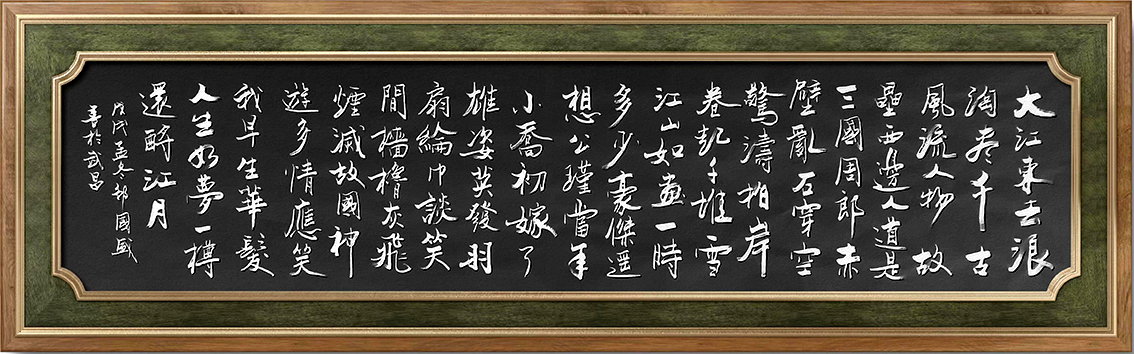 大江東去浪
淘尽千古
風流人物故
壘西邊人道是
三國周郎赤
壁亂石穿空
驚濤拍岸
卷起千堆雪
江山如畫一時
多少豪傑遥
想公瑾當年
小喬初嫁了
雄姿英發羽
扇綸巾談笑
間檣櫓灰飛
煙滅故國神
遊多情應笑
我早生華髮
人生如夢一樽
還酹江月
戊戌孟冬國盛
書於武昌